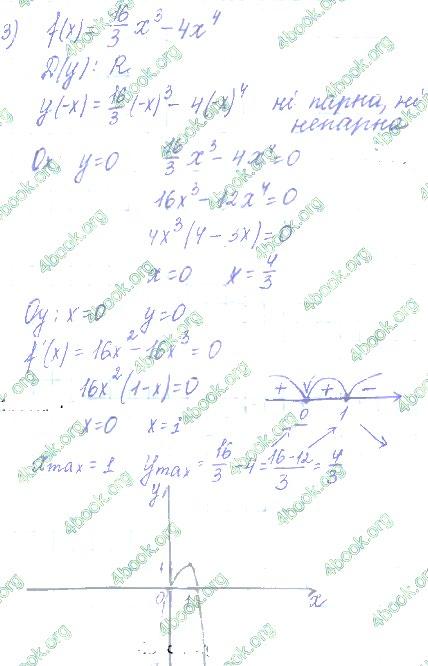 3) f(x) = 16/3 x³ − 4x⁴
D(y): R
y(-x) = 16/3 (-x)³ − 4(-x)⁴ ні парна, ні
непарна
Ox y=0 16/3 x³ − 4x⁴ = 0
16x³ − 12x⁴ = 0
4x³(4 − 3x) = 0
x=0 x = 4/3
Oy: x=0 y=0
f'(x) = 16x² − 16x³ = 0
16x²(1−x) = 0
+ + −
0 1
x=0 x=1
xmax = 1 ymax = 16/3 − 4 = (16−12)/3 = 4/3
y
1
0 1 x
4book.org